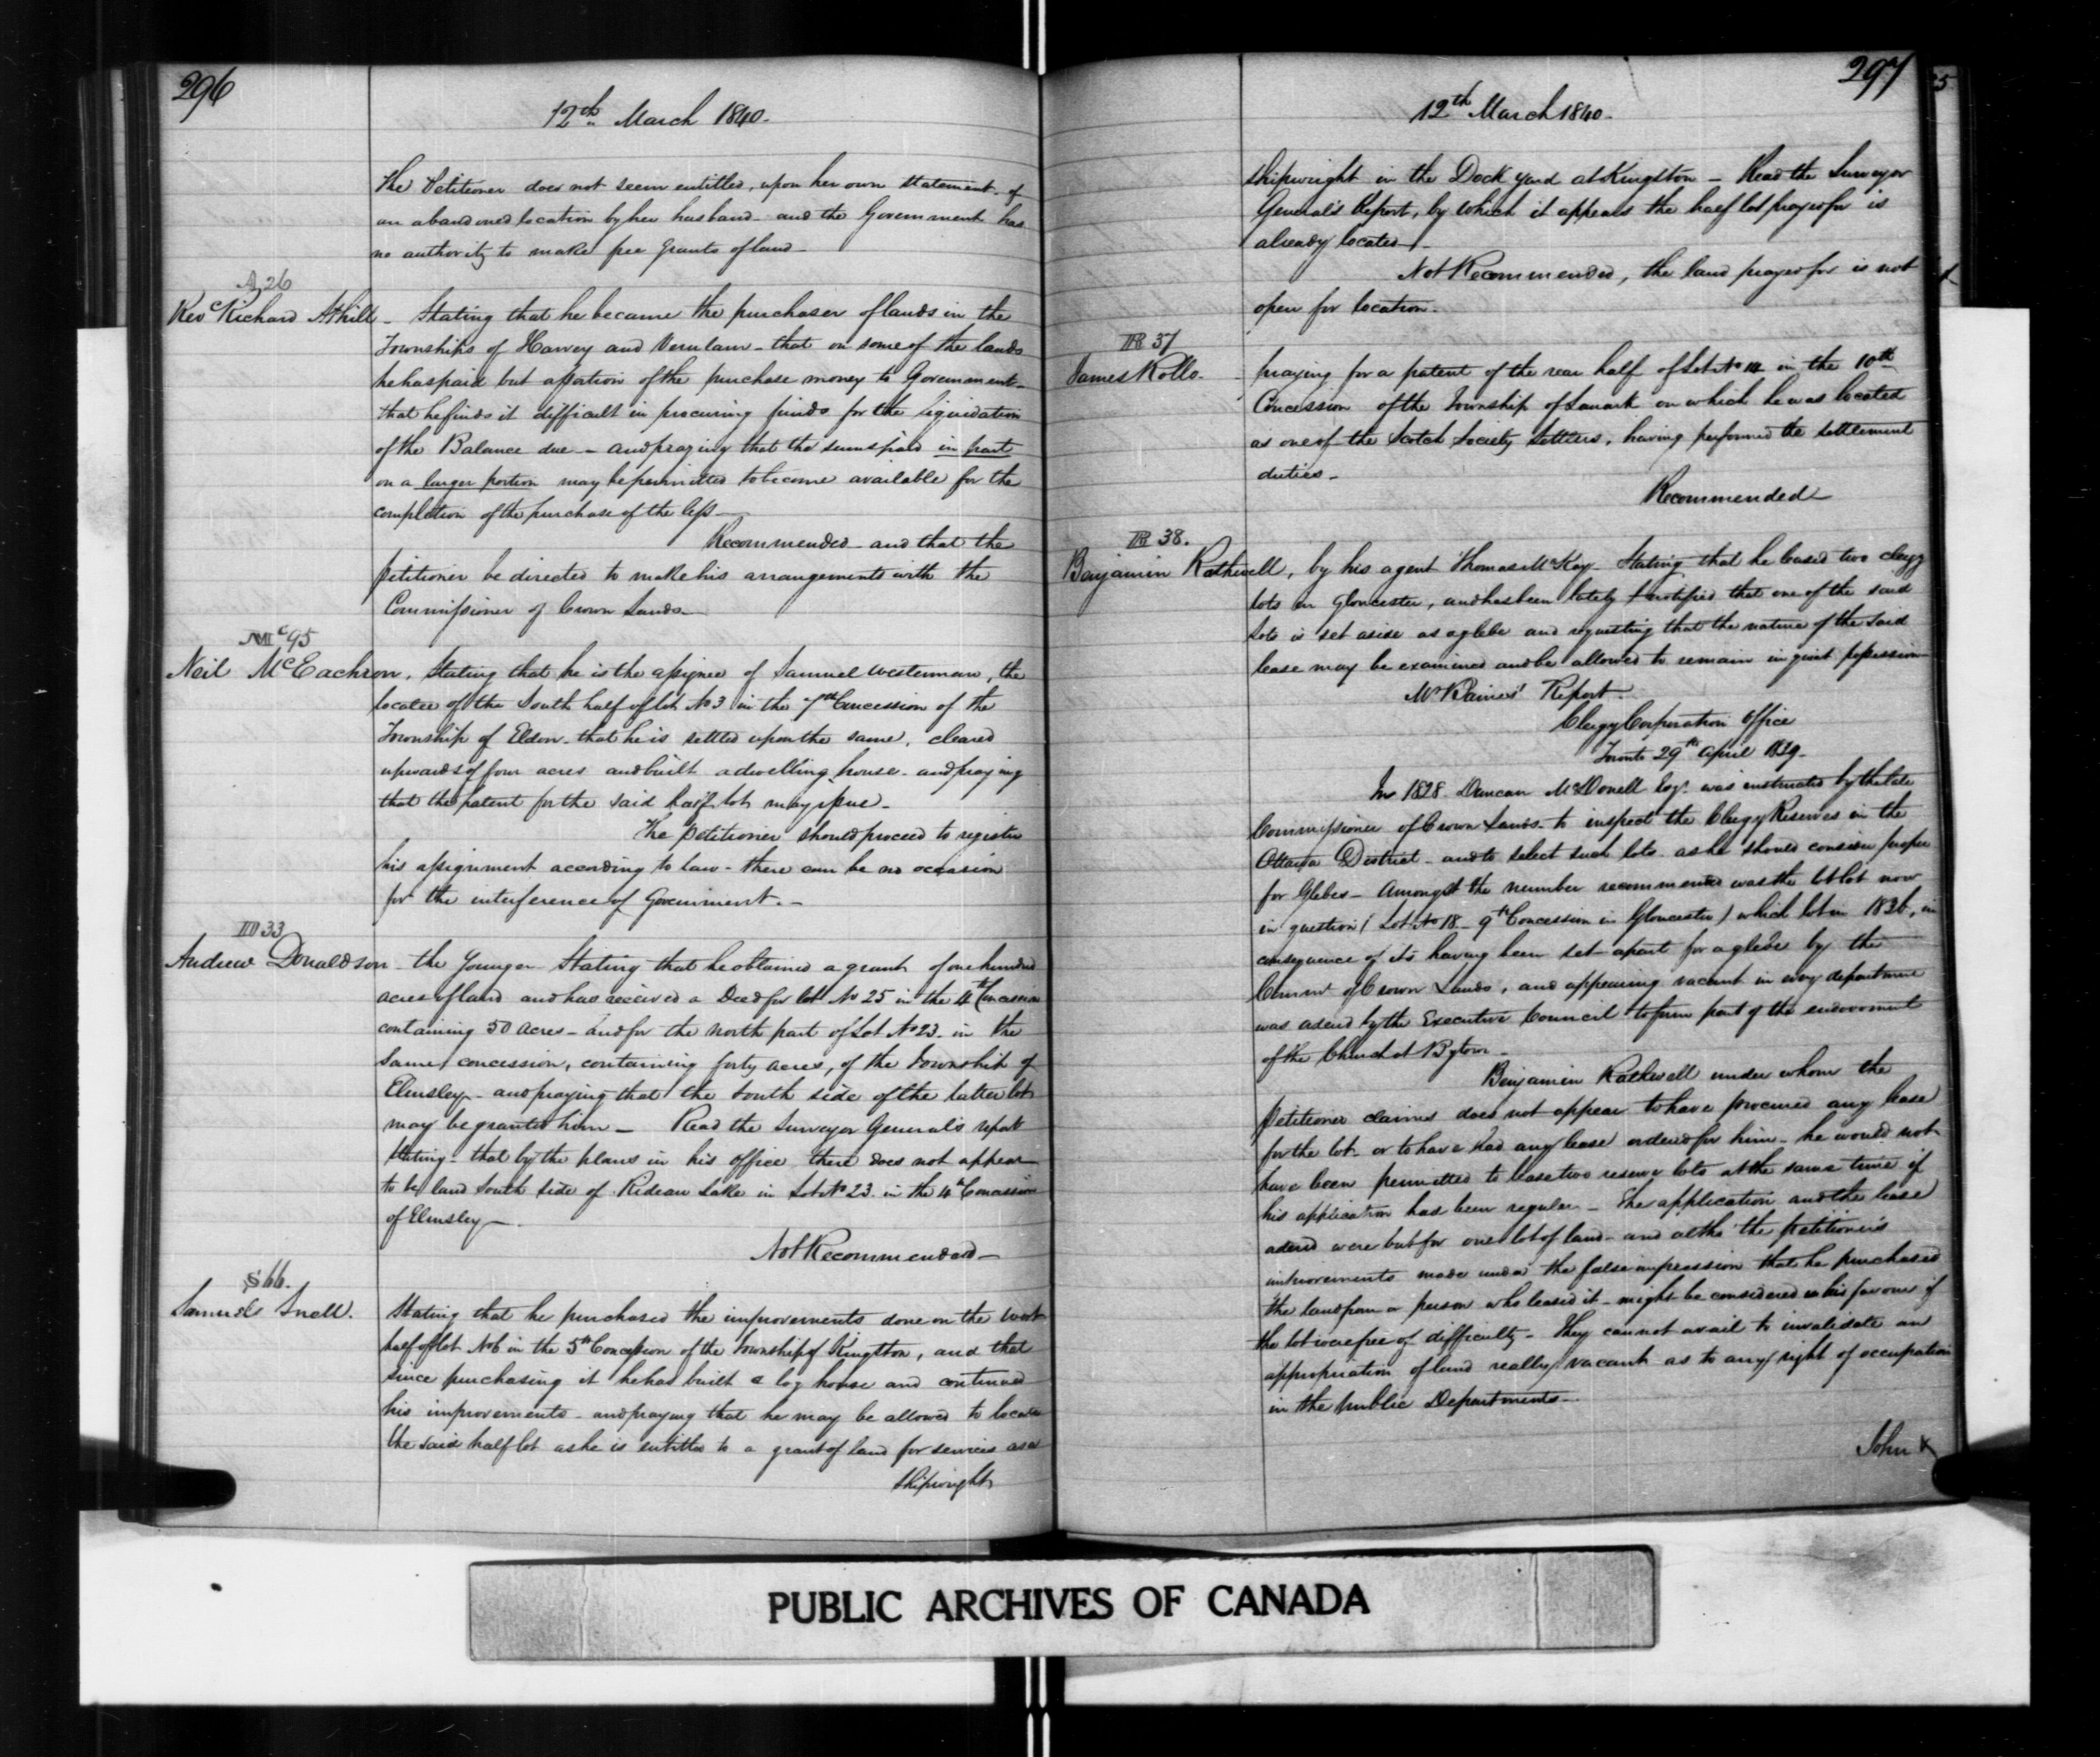 296
12th March 1840.
The Petitioner does not seem entitled, upon her own statement of
an abandoned location by her husband and the Government has
no authority to make free grants of land
A 26
Revd Richard Athill - Stating that he became the purchaser of lands in the
Townships of Harvey and Verulam - that on some of the lands
he has paid but a portion of the purchase money to Government -
that he finds it difficult in procuring funds for the liquidation
of the Balance due - and praying that the sums paid in part
on a larger portion may be permitted to become available for the
completion of the purchase of the less
Recommended and that the
petitioner be directed to make his arrangements with the
Commissioner of Crown Lands
Mc 95
Neil McEachron, Stating that he is the assignee of Samuel Westerman, the
locatee of the South half of lot No 3 in the 7th Concession of the
Township of Eldon - that he is settled upon the same, cleared
upwards of four acres and built a dwelling house - and praying
that the patent for the said half lot may issue -
The petitioner should proceed to register
his assignment according to law - there can be no occasion
for the interference of Government. -
D 33
Andrew Donaldson the Younger Stating that he obtained a grant of one hundred
acres of land and has received a Deed for lot No 25 in the 4th Concession
containing 50 acres - and for the north part of Lot No 23 in the
same concession, containing forty acres, of the Township of
Elmsley - and praying that the South side of the latter lot
may be granted him - Read the Surveyor General's report
stating - that by the plans in his office there does not appear
to be land South side of Rideau Lake in Lot No 23 in the 4th Concession
of Elmsley -
Not Recommended -
S 66.
Samuel Snell. Stating that he purchased the improvements done on the West
half of lot No 6 in the 5th Concession of the Township of Kingston, and that
since purchasing it he has built a log house and continued
his improvements - and praying that he may be allowed to locate
the said half lot as he is entitled to a grant of land for services as a
shipwright
297
12th March 1840.
shipwright in the Dock yard at Kingston - Read the Surveyor
General's Report, by which it appears the half lot prayed for is
already located -
Not Recommended, the land prayed for is not
open for location.
R 37
James Rollo. praying for a patent of the rear half of Lot No 14 in the 10th
Concession of the Township of Lanark on which he was located
as one of the Scotch Society Settlers, having performed the settlement
duties -
Recommended
R 38.
Benjamin Rathwell, by his agent Thomas McKay - Stating that he leased two clergy
lots in Gloucester, and has been lately notified that one of the said
Lots is set aside as a glebe and requesting that the nature of the said
lease may be examined and be allowed to remain in quiet possession
Mr Baines' Report.
Clergy Corporation Office
Toronto 29th April 1839 -
In 1828 Duncan McDonell Esqr. was instructed by the late
Commissioner of Crown Lands to inspect the Clergy Reserves in the
Ottawa District - and to select such lots as he should consider proper
for Glebes - Amongst the number recommended was the lot now
in question (Lot No 18 - 9th Concession in Gloucester) which lot in 1836, in
consequence of its having been set apart for a glebe by the
Commr of Crown Lands, and appearing vacant in every department
was ordered by the Executive Council to form part of the endowment
of the Church at Bytown -
Benjamin Rathwell under whom the
petitioner claims does not appear to have procured any lease
for the lot - or to have had any lease ordered for him - he would not
have been permitted to lease two reserve lots at the same time if
his application had been regular - The application and the lease
ordered were but for one lot of land - and altho' the petitioner's
improvements made under the false impression that he purchased
the land from a person who leased it - might be considered in his favour if
the lot were free of difficulty - They cannot avail to invalidate an
appropriation of land really vacant as to any right of occupation
in the public Departments -
John
PUBLIC ARCHIVES OF CANADA